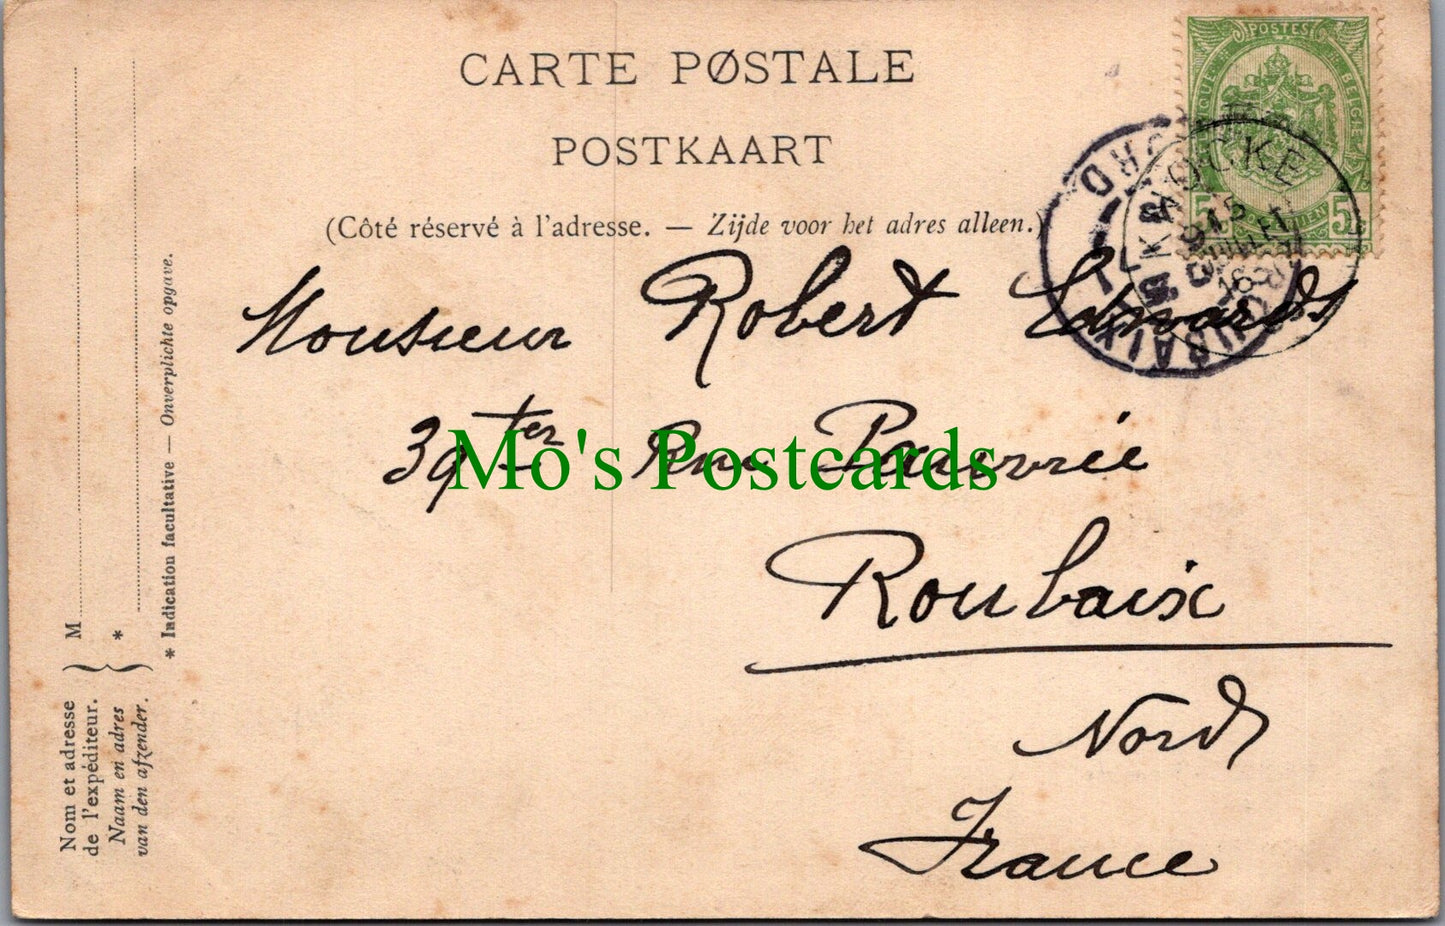 CARTE PØSTALE
POSTKAART
(Côté réservé à l'adresse. — Zijde voor het adres alleen.)
Monsieur Robert Edwards
39 ter Rue Pauvrée
Roubaix
Nord
France
Mo's Postcards
Nom et adresse
de l'expéditeur.
Naam en adres
van den afzender.
M
*
* Indication facultative — Onverplichte opgave.
POSTES
BELGIQUE
5 5
KNOCKE
15
JUILLET
ROUBAIX
NORD